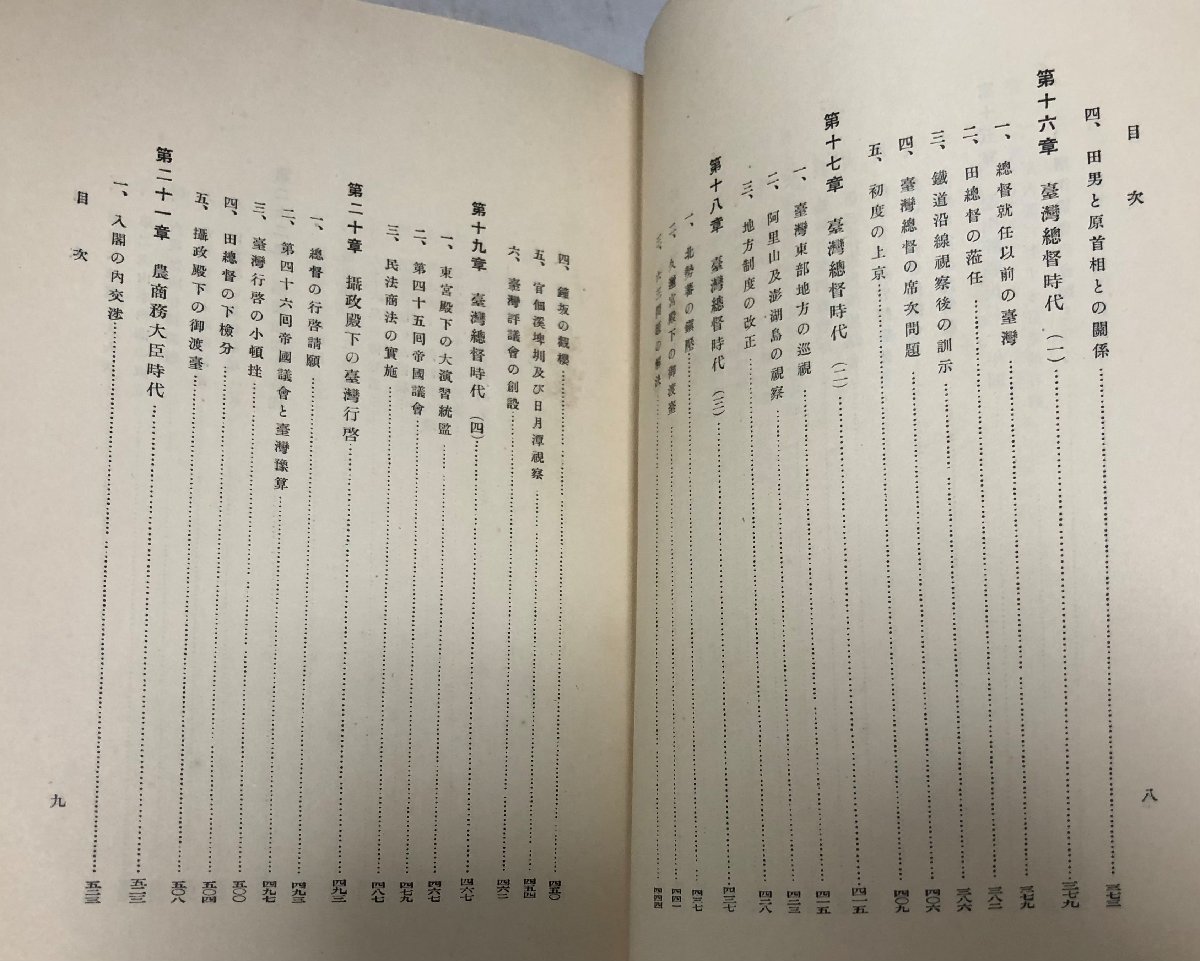 目次
四、田男と原首相との關係……三七三
第十六章 臺灣總督時代(一)……三七九
一、總督就任以前の臺灣……三七九
二、田總督の蒞任……三八二
三、鐵道沿線視察後の訓示……三八六
四、臺灣總督の席次問題……四〇六
五、初度の上京……四〇九
第十七章 臺灣總督時代(二)……四一五
一、臺灣東部地方の巡視……四一五
二、阿里山及び澎湖島の視察……四二三
三、地方制度の改正……四二八
第十八章 臺灣總督時代(三)……四三七
一、北勢蕃の鎭壓……四三七
二、久邇宮殿下の御渡臺……四四一
三、六三問題の解決……四四四
八
四、鐘坂の觀櫻……四五〇
五、官佃溪埤圳及び日月潭視察……四五四
六、臺灣評議會の創設……四六二
第十九章 臺灣總督時代(四)……四六七
一、東宮殿下の大演習統監……四六七
二、第四十五回帝國議會……四七九
三、民法商法の實施……四八七
第二十章 攝政殿下の臺灣行啓……四九三
一、總督の行啓請願……四九三
二、第四十六回帝國議會と臺灣豫算……四九七
三、臺灣行啓の小頓挫……五〇〇
四、田總督の下檢分……五〇四
五、攝政殿下の御渡臺……五〇八
第二十一章 農商務大臣時代……五二三
一、入閣の內交渉……五二三
目次
九